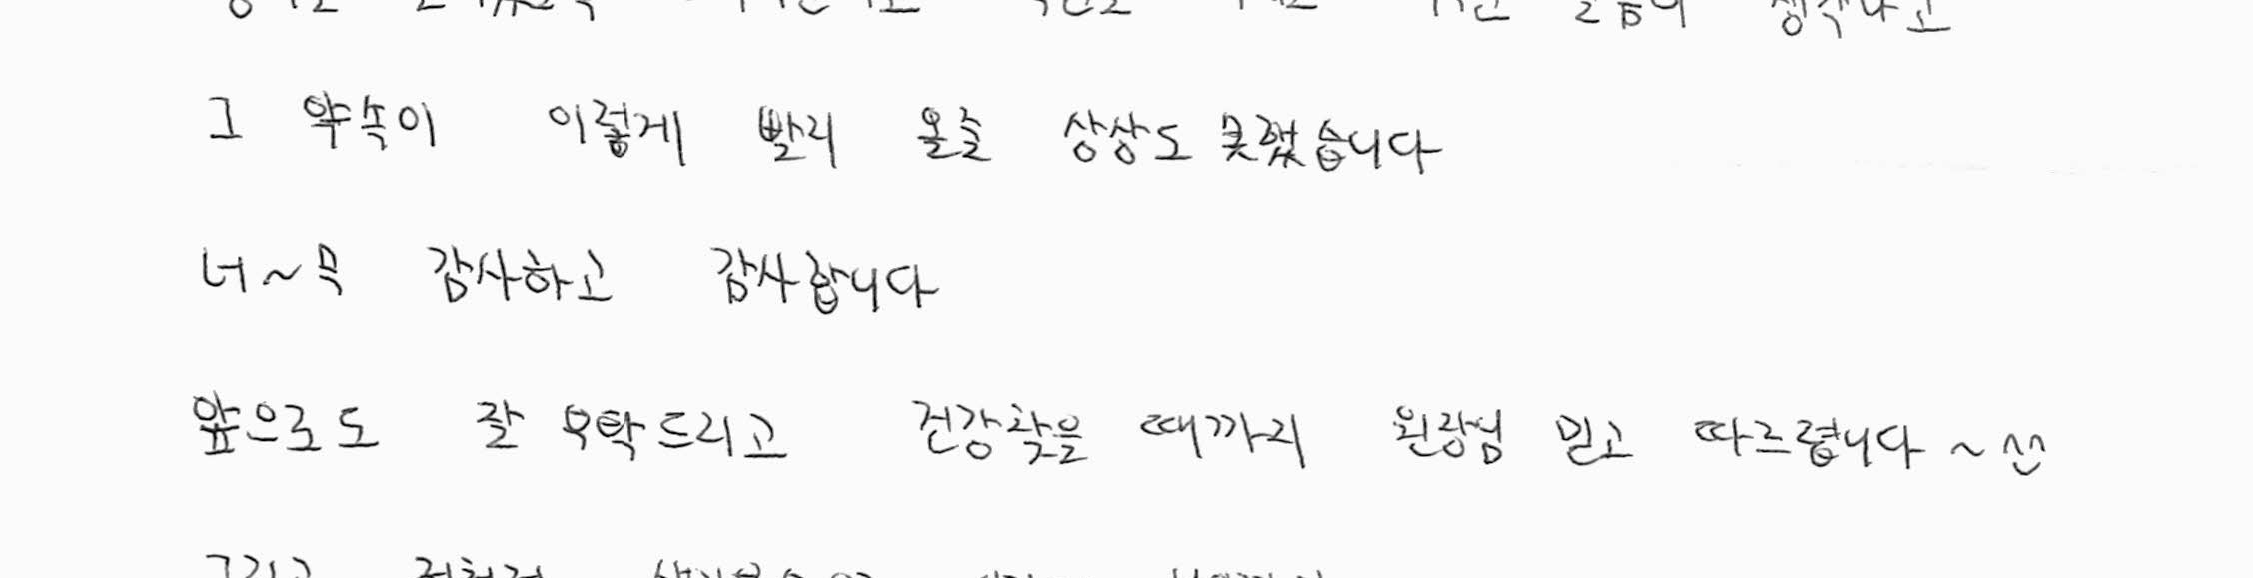 생각나고
그 약속이 이렇게 빨리 올줄 상상도 못했습니다
너~무 감사하고 감사합니다
앞으로도 잘 부탁드리고 건강찾을 때까지 원장님 믿고 따르렵니다~^^
그리고 저처럼